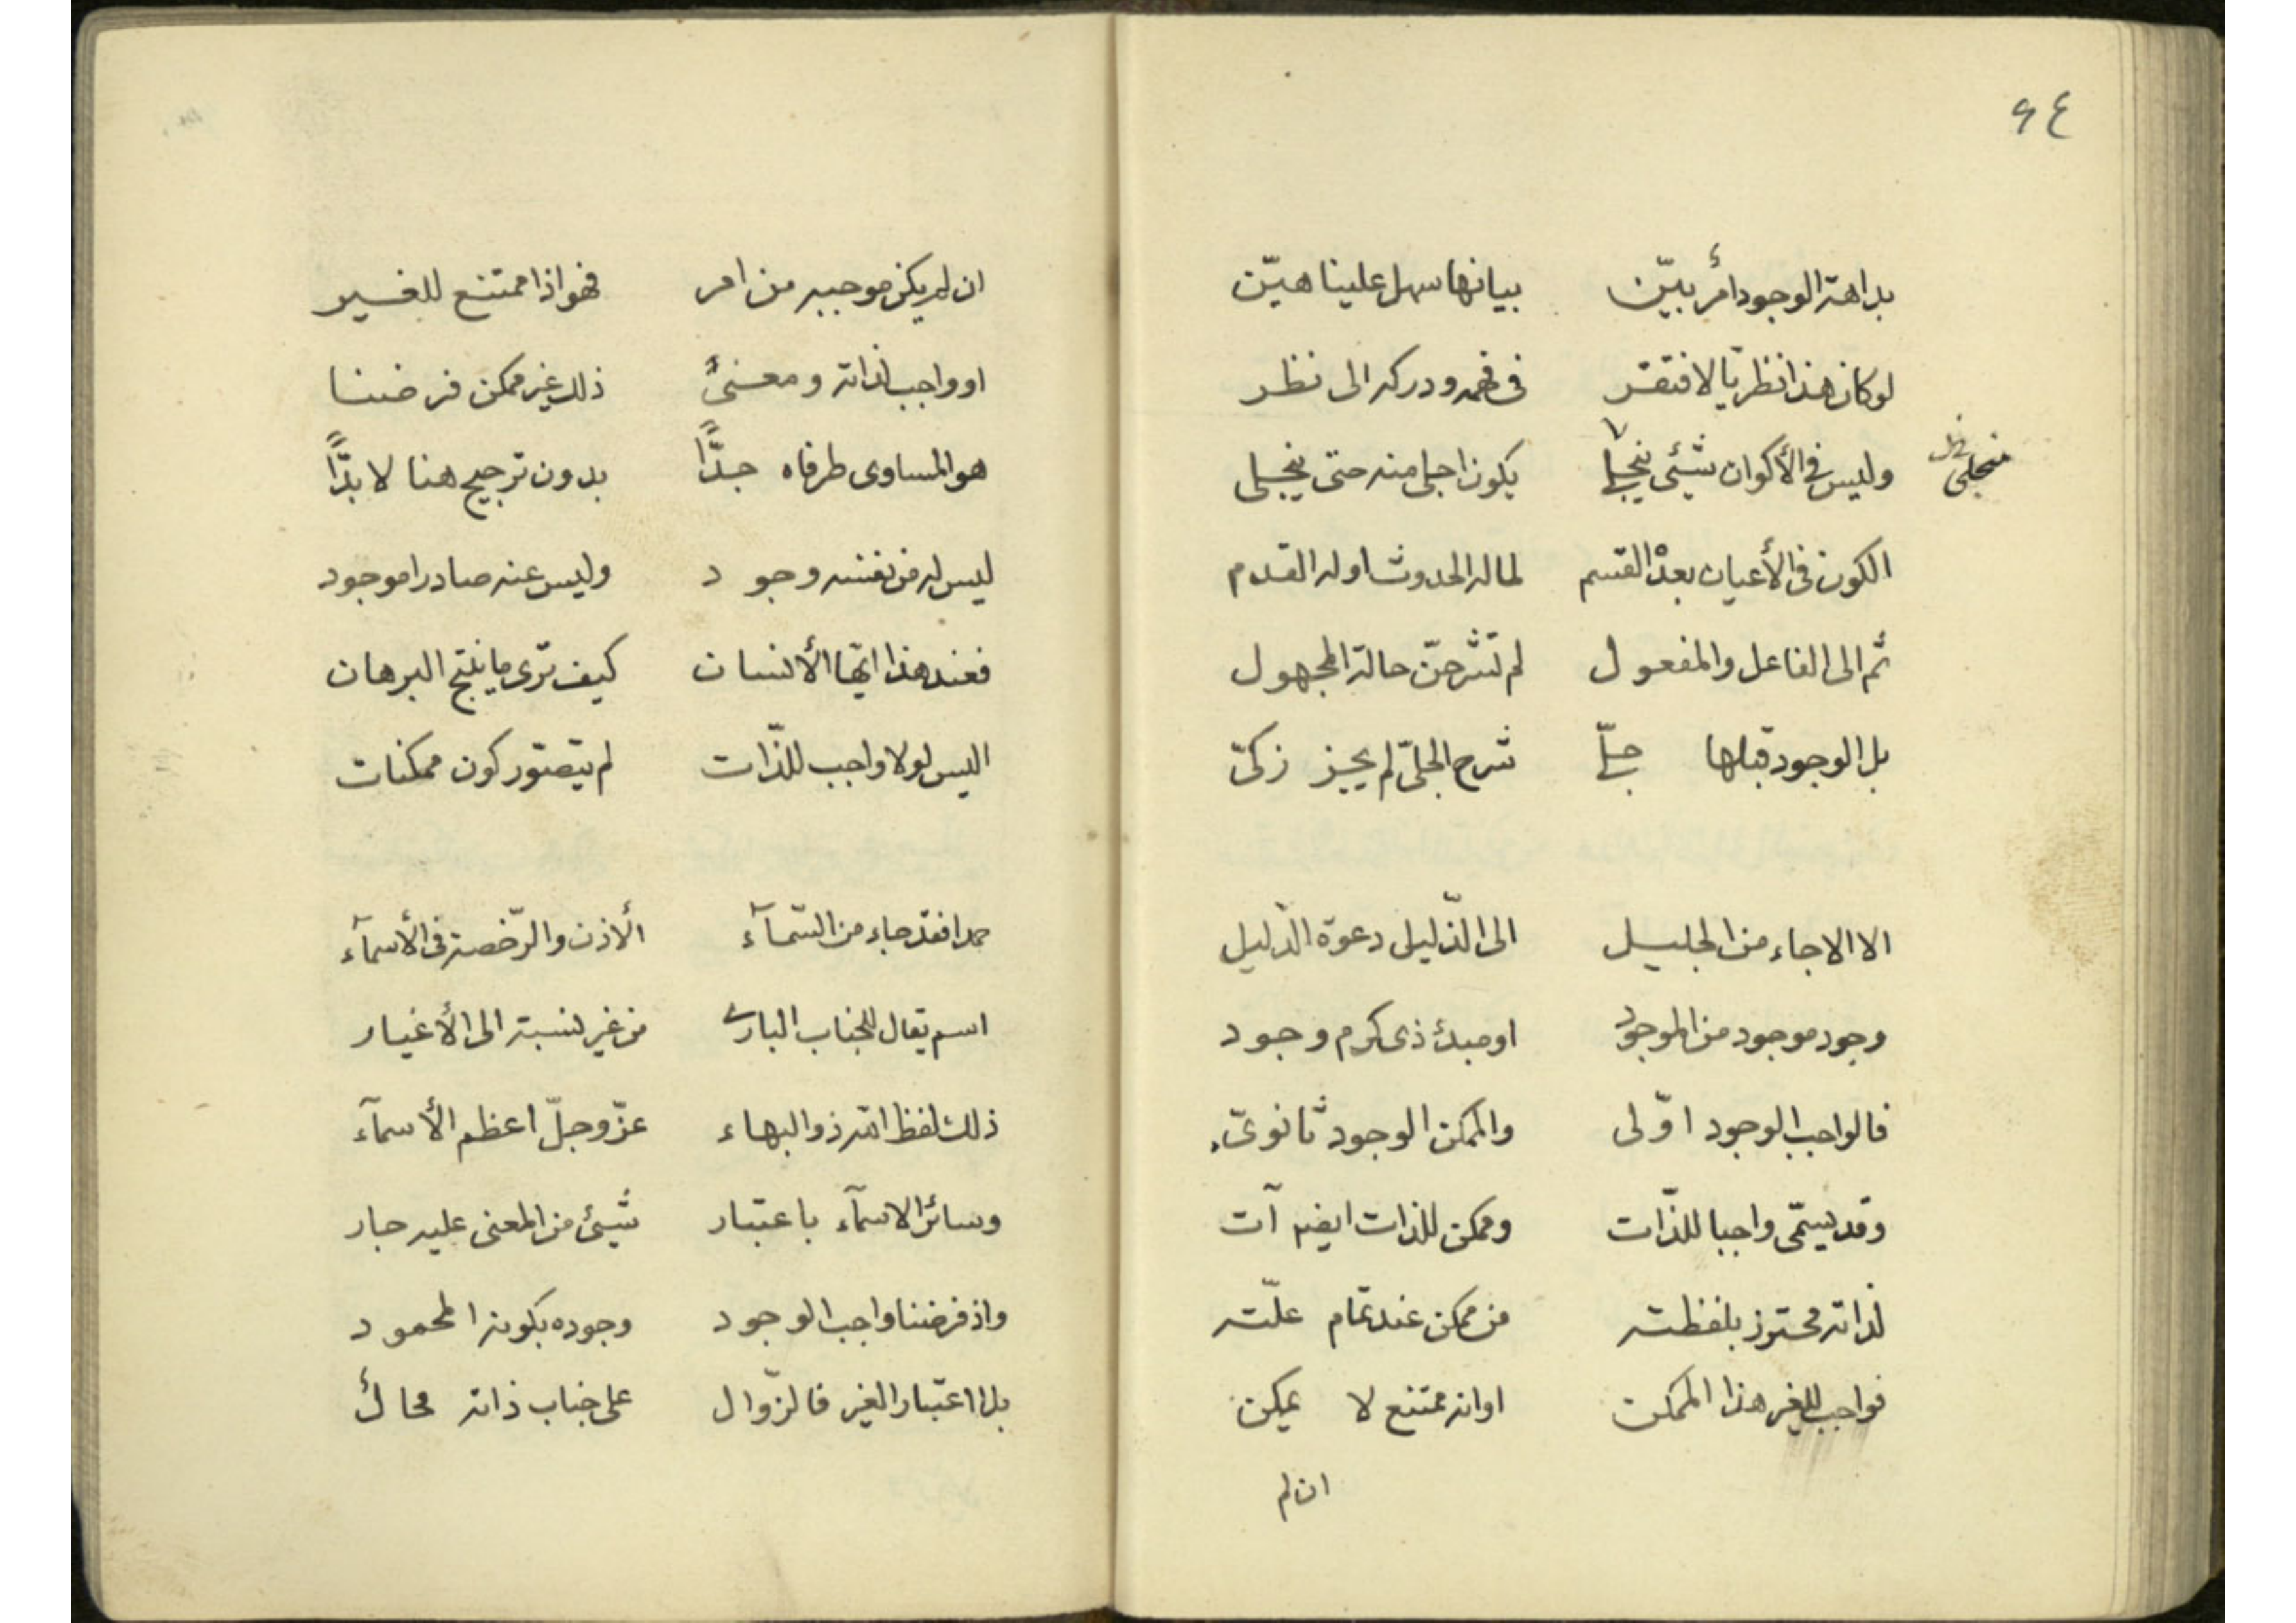 ٤٤
بداهة الوجود أمرٌ بيّن بيانها سهل علينا هيّن
لو كان هذا نظريّا لافتقر فى فهمه ودركه الى نظر
وليس فى الأكوان شيئى ينجلى يكون اجلى منه حتى ينجلى
منجلى
الكون فى الأعيان بعدْ القسم لما له الحدوث او له القدم
ثم الى الفاعل والمفعول لم تشرحنّ حالة المجهول
بل الوجود قبلها جلىّ شرح الجلىّ لم يجز زكىّ
الا الا جاء من الجليل الى الذّليل دعوة الدّليل
وجود موجود من الموجود او مبدئ ذى كرم وجود
فالواجب الوجود اوّلى والممكن الوجود ثانوىّ
وقد يسمّى واجبا للذّات وممكن للذات ايضا آت
لذاته محترز بلفظته من ممكن عند تمام علّته
فواجب للغير هذا الممكن او انه ممتنع لا يمكن
ان لم
ان لم يكن موجبه من امر فهو اذا ممتنع للغير
او واجب لذاته ومعنىً ذلك غير ممكن فرضنا
هو المساوى طرفاه جدًّا بدون ترجيح هنا لا بدًّا
ليس له من نفسه وجود وليس عنه صادرا موجود
فعند هذا ايّها الأنسان كيف ترى ما ينتج البرهان
اليس لولا واجب للذّات لم يتصوّر كون ممكنات
حمدا فقد جاء من السّمآء ألاذن والرّخصة فى الأسمآء
اسم يقال للجناب البارى من غير نسبة الى الأغيار
ذلك لفظ اللّه ذو البهاء عزّ وجلّ اعظم الأسمآء
وسائر الاسمآء باعتبار شيئ من المعنى عليه جار
واذ فرضنا واجب الوجود وجوده بكونه المحمود
بلا اعتبار الغير فالزّوال على جناب ذاته محالٌ